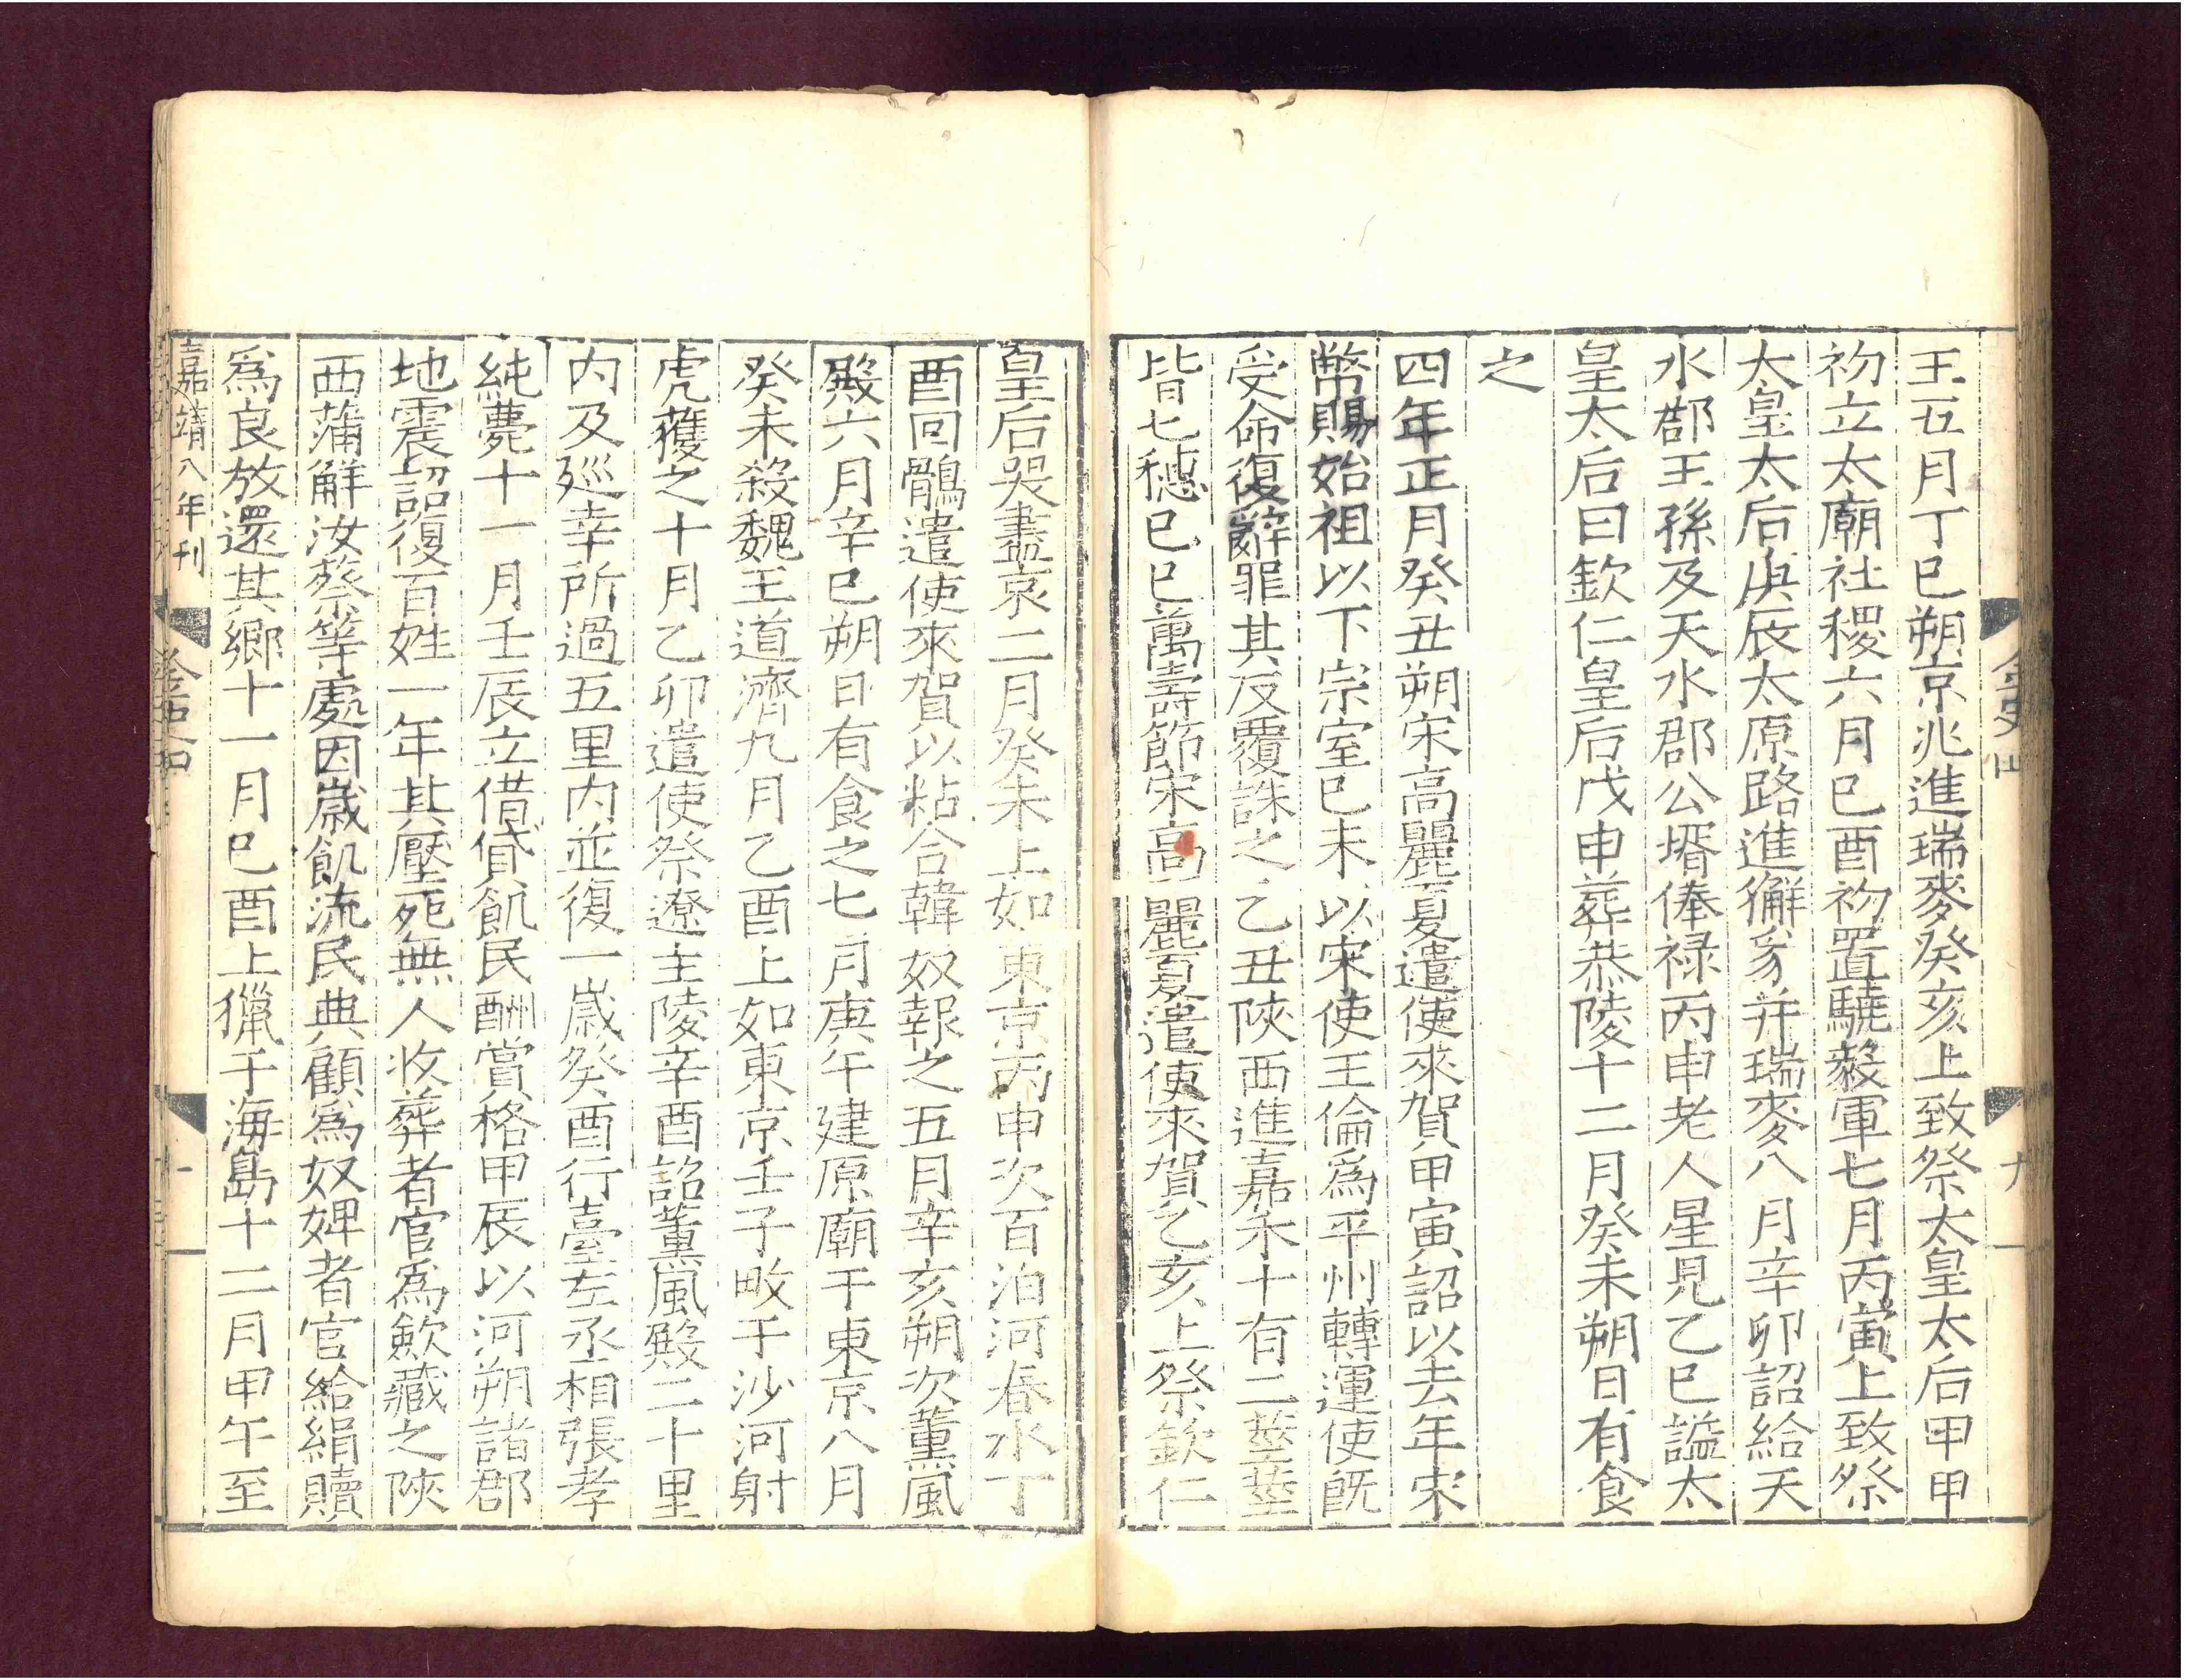 金史四
九
王五月丁巳朔京兆進瑞麥癸亥上致祭太皇太后甲甲
初立太廟社稷六月巳酉初置驍毅軍七月丙寅上致祭
大皇太后庚辰太原路進獬豸并瑞麥八月辛卯詔給天
水郡王孫及天水郡公壻俸禄丙申老人星見乙巳謚太
皇太后曰欽仁皇后戊申葬恭陵十二月癸未朔日有食
之
四年正月癸丑朔宋高麗夏遣使來賀甲寅詔以去年宋
幣賜始祖以下宗室巳未以宋使王倫爲平州轉運使旣
受命復辭罪其反覆誅之乙丑陜西進嘉禾十有二莖莖
皆七穗巳巳萬壽節宋高麗夏遣使來賀乙亥上祭欽仁
皇后哭盡哀二月癸未上如東京丙申次百泊河春水丁
酉回鶻遣使來賀以粘合韓奴報之五月辛亥朔次薰風
殿六月辛巳朔日有食之七月庚午建原廟于東京八月
癸未殺魏王道濟九月乙酉上如東京壬子畋于沙河射
虎獲之十月乙卯遣使祭遼主陵辛酉詔薰風殿二十里
内及廵幸所過五里内並復一歲癸酉行臺左丞相張孝
純薨十一月壬辰立借貸飢民酬賞格甲辰以河朔諸郡
地震詔復百姓一年其壓死無人收葬者官爲歛藏之陜
西蒲解汝蔡等處因歲飢流民典顧爲奴婢者官給絹贖
爲良放還其鄉十一月巳酉上獵于海島十二月甲午至
嘉靖八年刊
金史四